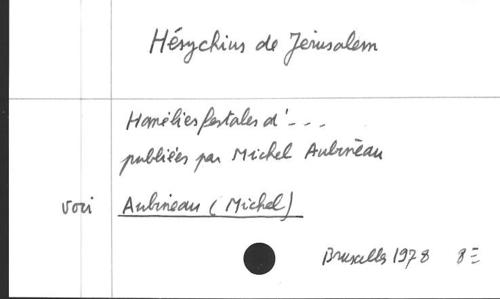 Hésychius de Jérusalem
Homélies festales d' - - -
publiées par Michel Aubineau
voir Aubineau (Michel)
Bruxelles 1978 8=